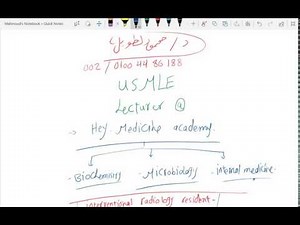 د/ محمود الطويل
002 / 0100 44 86 188
USMLE
Lecturer @
→ Hey Medicine academy.
Biochemistry Microbiology internal medicine
interventional radiology resident